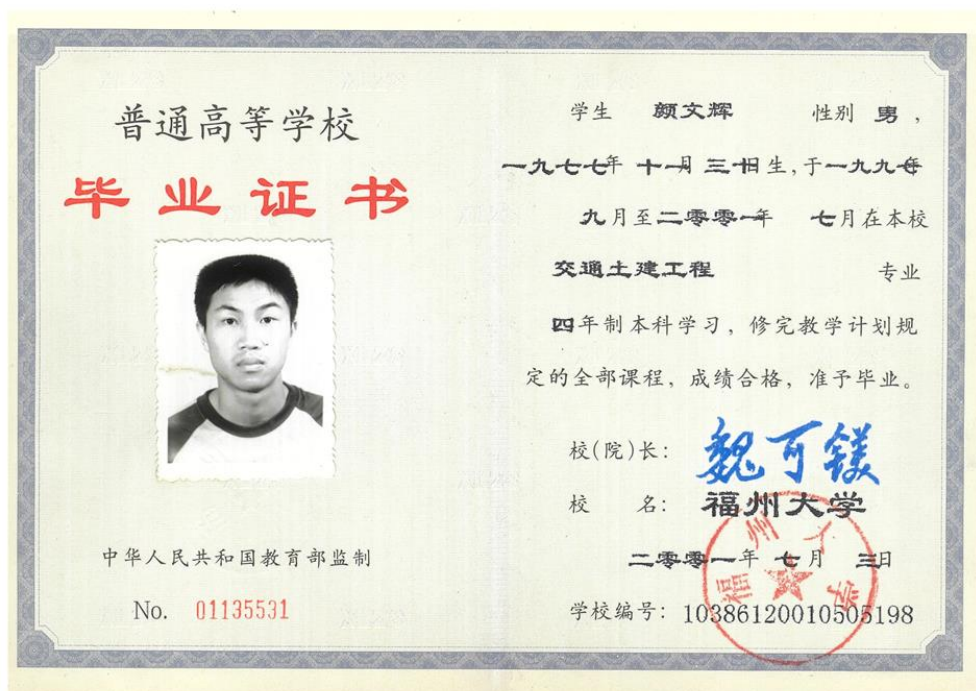 普通高等学校
毕业证书
中华人民共和国教育部监制
No. 01135531
学生 颜文辉 性别 男，
一九七七年 十一月 三十日生，于一九九七年
九月至二零零一年 七月在本校
交通土建工程 专业
四年制本科学习，修完教学计划规
定的全部课程，成绩合格，准予毕业。
校(院)长： 魏可镁
校 名： 福州大学
二零零一年 七月 三日
学校编号：10386120010505198
福州大学